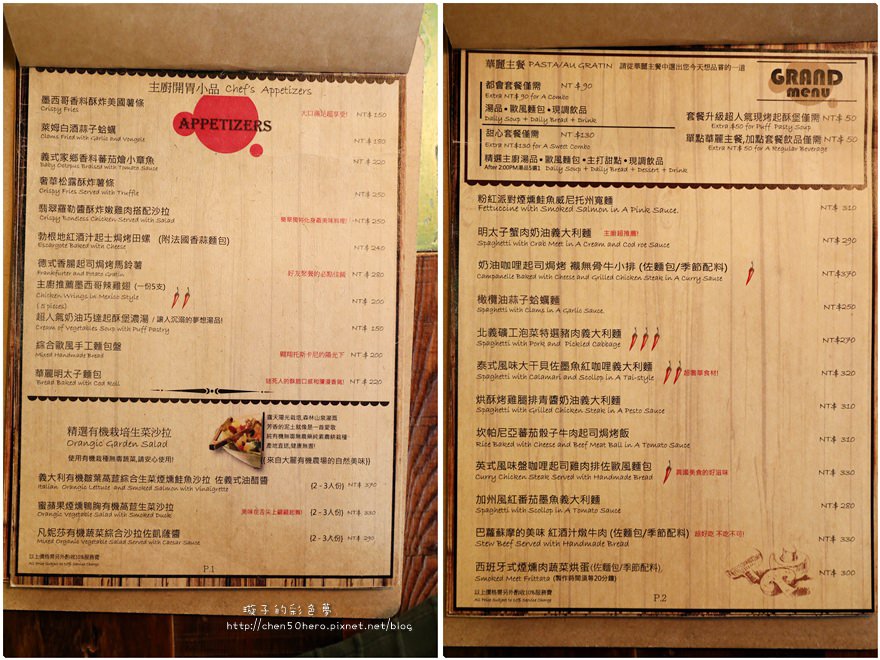 主廚開胃小品 Chef's Appetizers
APPETIZERS
墨西哥香料酥炸美國薯條
Crispy Fries
大口滿足超享受! NT$ 150
萊姆白酒蒜子蛤蠣
Clams Fried with Garlic and Vongole
NT$ 180
義式家鄉香料蕃茄燴小章魚
Baby Octopus Braised with Tomato Sauce
NT$ 220
奢華松露酥炸薯條
Crispy Fries Served with Truffle
NT$ 250
翡翠羅勒醬酥炸嫩雞肉搭配沙拉
Crispy Boneless Chicken Served with Salad
NT$ 250
勃根地紅酒汁起士焗烤田螺 (附法國香蒜麵包)
Escargots Baked with Cheese
NT$ 240
德式香腸起司焗烤馬鈴薯
Frankfurter and Potato Gratin
好友聚餐的必點佳餚 NT$ 280
主廚推薦墨西哥辣雞翅 (一份5支)
Chicken Wings in Mexico Style
( 5 pieces)
NT$ 200
超人氣奶油巧達起酥堡濃湯 / 讓人沉溺的夢想湯品!
Cream of Vegetables Soup with Puff Pastry
NT$ 150
綜合歐風手工麵包盤
Mixed Handmade Bread
翱翔托斯卡尼的陽光下 NT$ 200
華麗明太子麵包
Bread Baked with Cod Roll
迷死人的酥脆口感和瀰漫香氣! NT$ 220
精選有機栽培生菜沙拉
Orangic Garden Salad
使用有機栽種無毒蔬菜,請安心使用!
露天陽光栽培,森林山泉灌溉
芳香的泥土就像是一首愛歌
純有機無毒無農藥純素農耕栽種
產地直送,健康無害!
((來自大麗有機農場的自然美味))
義大利有機皺葉萵苣綜合生菜煙燻鮭魚沙拉 佐義式油醋醬
Italian Orangic Lettuce and Smoked Salmon with Vinaigrette
(2 - 3人份) NT$ 370
蜜蘋果煙燻鴨胸有機萵苣生菜沙拉
Orangic Vegetable Salad with Smoked Duck
美味在舌尖上翩翩起舞! (2 - 3人份) NT$ 330
凡妮莎有機蔬菜綜合沙拉佐凱薩醬
Mixed Organix Vegetable Salad Served with Caesar Sauce
(2 - 3人份) NT$ 290
以上價格需另外酌收10%服務費
All Price Subject to 10% Service Charge
P.1
璇子的彩色夢
http://chen50hero.pixnet.net/blog
華麗主餐 PASTA/AU GRATIN 請從華麗主餐中選出您今天想品嘗的一道
GRAND menu
都會套餐僅需 NT$ 90
Extra NT$ 90 for A Combo
湯品•歐風麵包•現調飲品
Daily Soup + Daily Bread + Drink
甜心套餐僅需 NT$130
Extra NT$130 for A Sweet Combo
精選主廚湯品•歐風麵包•主打甜點•現調飲品
After 2:00PM湯品5選1 Daily Soup + Daily Bread + Dessert + Drink
套餐升級超人氣現烤起酥堡僅需 NT$ 50
Extra $50 for Puff Pasty Soup
單點華麗主餐,加點套餐飲品僅需 NT$ 50
Extra NT$ 50 for A Regular Beverage
粉紅派對煙燻鮭魚威尼托州寬麵
Fettuccine with Smoked Salmon in A Pink Sauce.
NT$ 310
明太子蟹肉奶油義大利麵 主廚超推薦!
Spaghetti with Crab Meet in A Cream and Cod roe Sauce
NT$ 290
奶油咖哩起司焗烤 襪無骨牛小排 (佐麵包/季節配料)
Campanelle Baked with Cheese and Grilled Chicken Steak in A Curry Sauce
NT$370
橄欖油蒜子蛤蠣麵
Spaghetti with Clams in A Garlic Sauce.
NT$250
北義礦工泡菜特選豬肉義大利麵
Spaghetti with Pork and Pickled Cabbage
NT$270
泰式風味大干貝佐墨魚紅咖哩義大利麵
Spaghetti with Calamari and Scollop in A Tai-style
超奢華食材! NT$ 320
烘酥烤雞腿排青醬義大利麵
Spaghetti with Grilled Chicken Steak in A Pesto Sauce
NT$ 310
坎帕尼亞蕃茄骰子牛肉起司焗烤飯
Rice Baked with Cheese and Beef Meat Ball in A Tomato Sauce
NT$ 310
英式風味盤咖哩起司雞肉排佐歐風麵包
Curry Chicken Steak Served with Handmade Bread
異國美食的好滋味 NT$ 330
加州風紅番茄墨魚義大利麵
Spaghetti with Scollop in A Tomato Sauce
NT$ 280
巴蘿蘇摩的美味 紅酒汁燉牛肉 (佐麵包/季節配料) 超好吃 不吃不可!
Stew Beef Served with Handmade Bread
NT$ 330
西班牙式煙燻肉蔬菜烘蛋(佐麵包/季節配料)
Smoked Meet Frittata (製作時間須等20分鐘)
NT$ 300
以上價格需另外酌收10%服務費
All Price Subject to 10% Service Charge
P.2